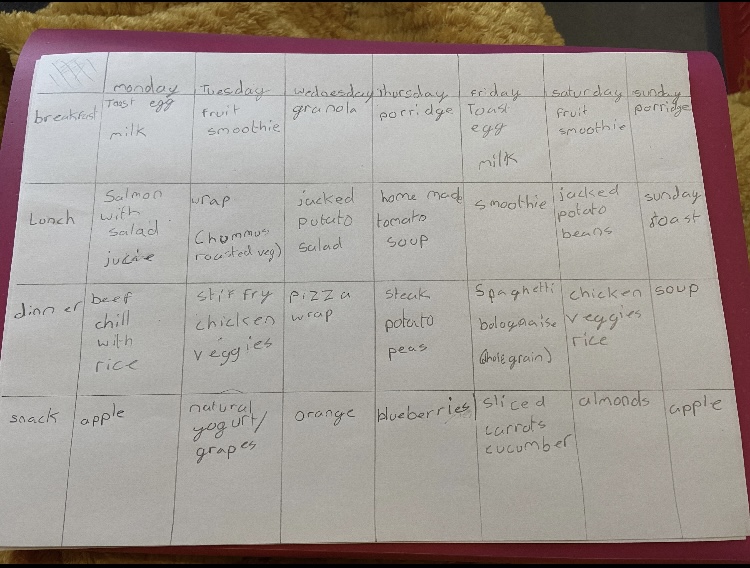 monday Tuesday wednesday thursday friday saturday sunday
breakfast
Toast egg
milk
fruit
smoothie
granola
porridge
Toast
egg
milk
fruit
smoothie
porridge
Lunch
Salmon
with
salad
jucie
wrap
(hommus
roasted veg)
jacked
potato
salad
home made
tomato
soup
smoothie
jacked
potato
beans
sunday
roast
dinner
beef
chill
with
rice
stir fry
chicken
veggies
pizza
wrap
steak
potato
peas
Spaghetti
bolognaise
(whole grain)
chicken
veggies
rice
soup
snack
apple
natural
yogurt/
grapes
orange
blueberries
sliced
carrots
cucumber
almonds
apple